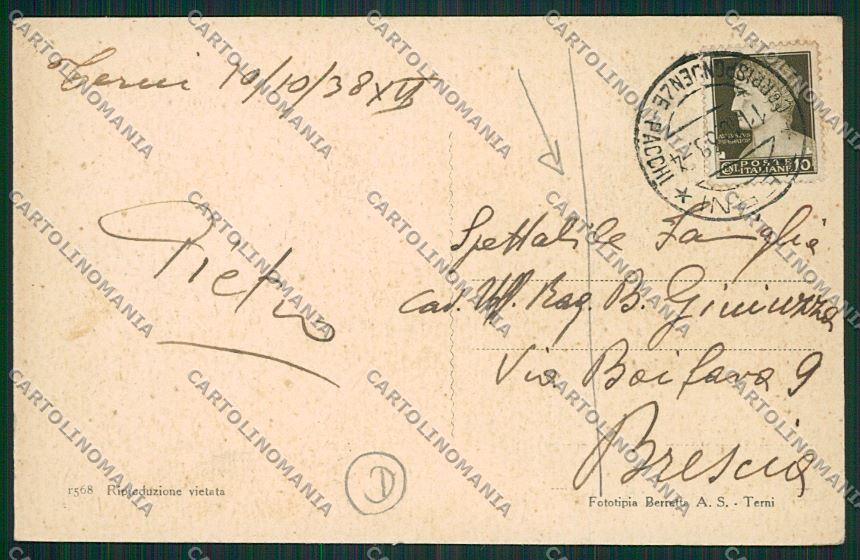 Terni 10/10/38 XVI
Pietro
CORRISPONDENZE-PACCHI
TERNI
POSTE ITALIANE
CENT. 10
Spettabile Famiglia
Cav. Uff. Rag. B.
Via
9
Brescia
1568 Riproduzione vietata
Fototipia Berretta A. S. - Terni
D
CARTOLINOMANIA